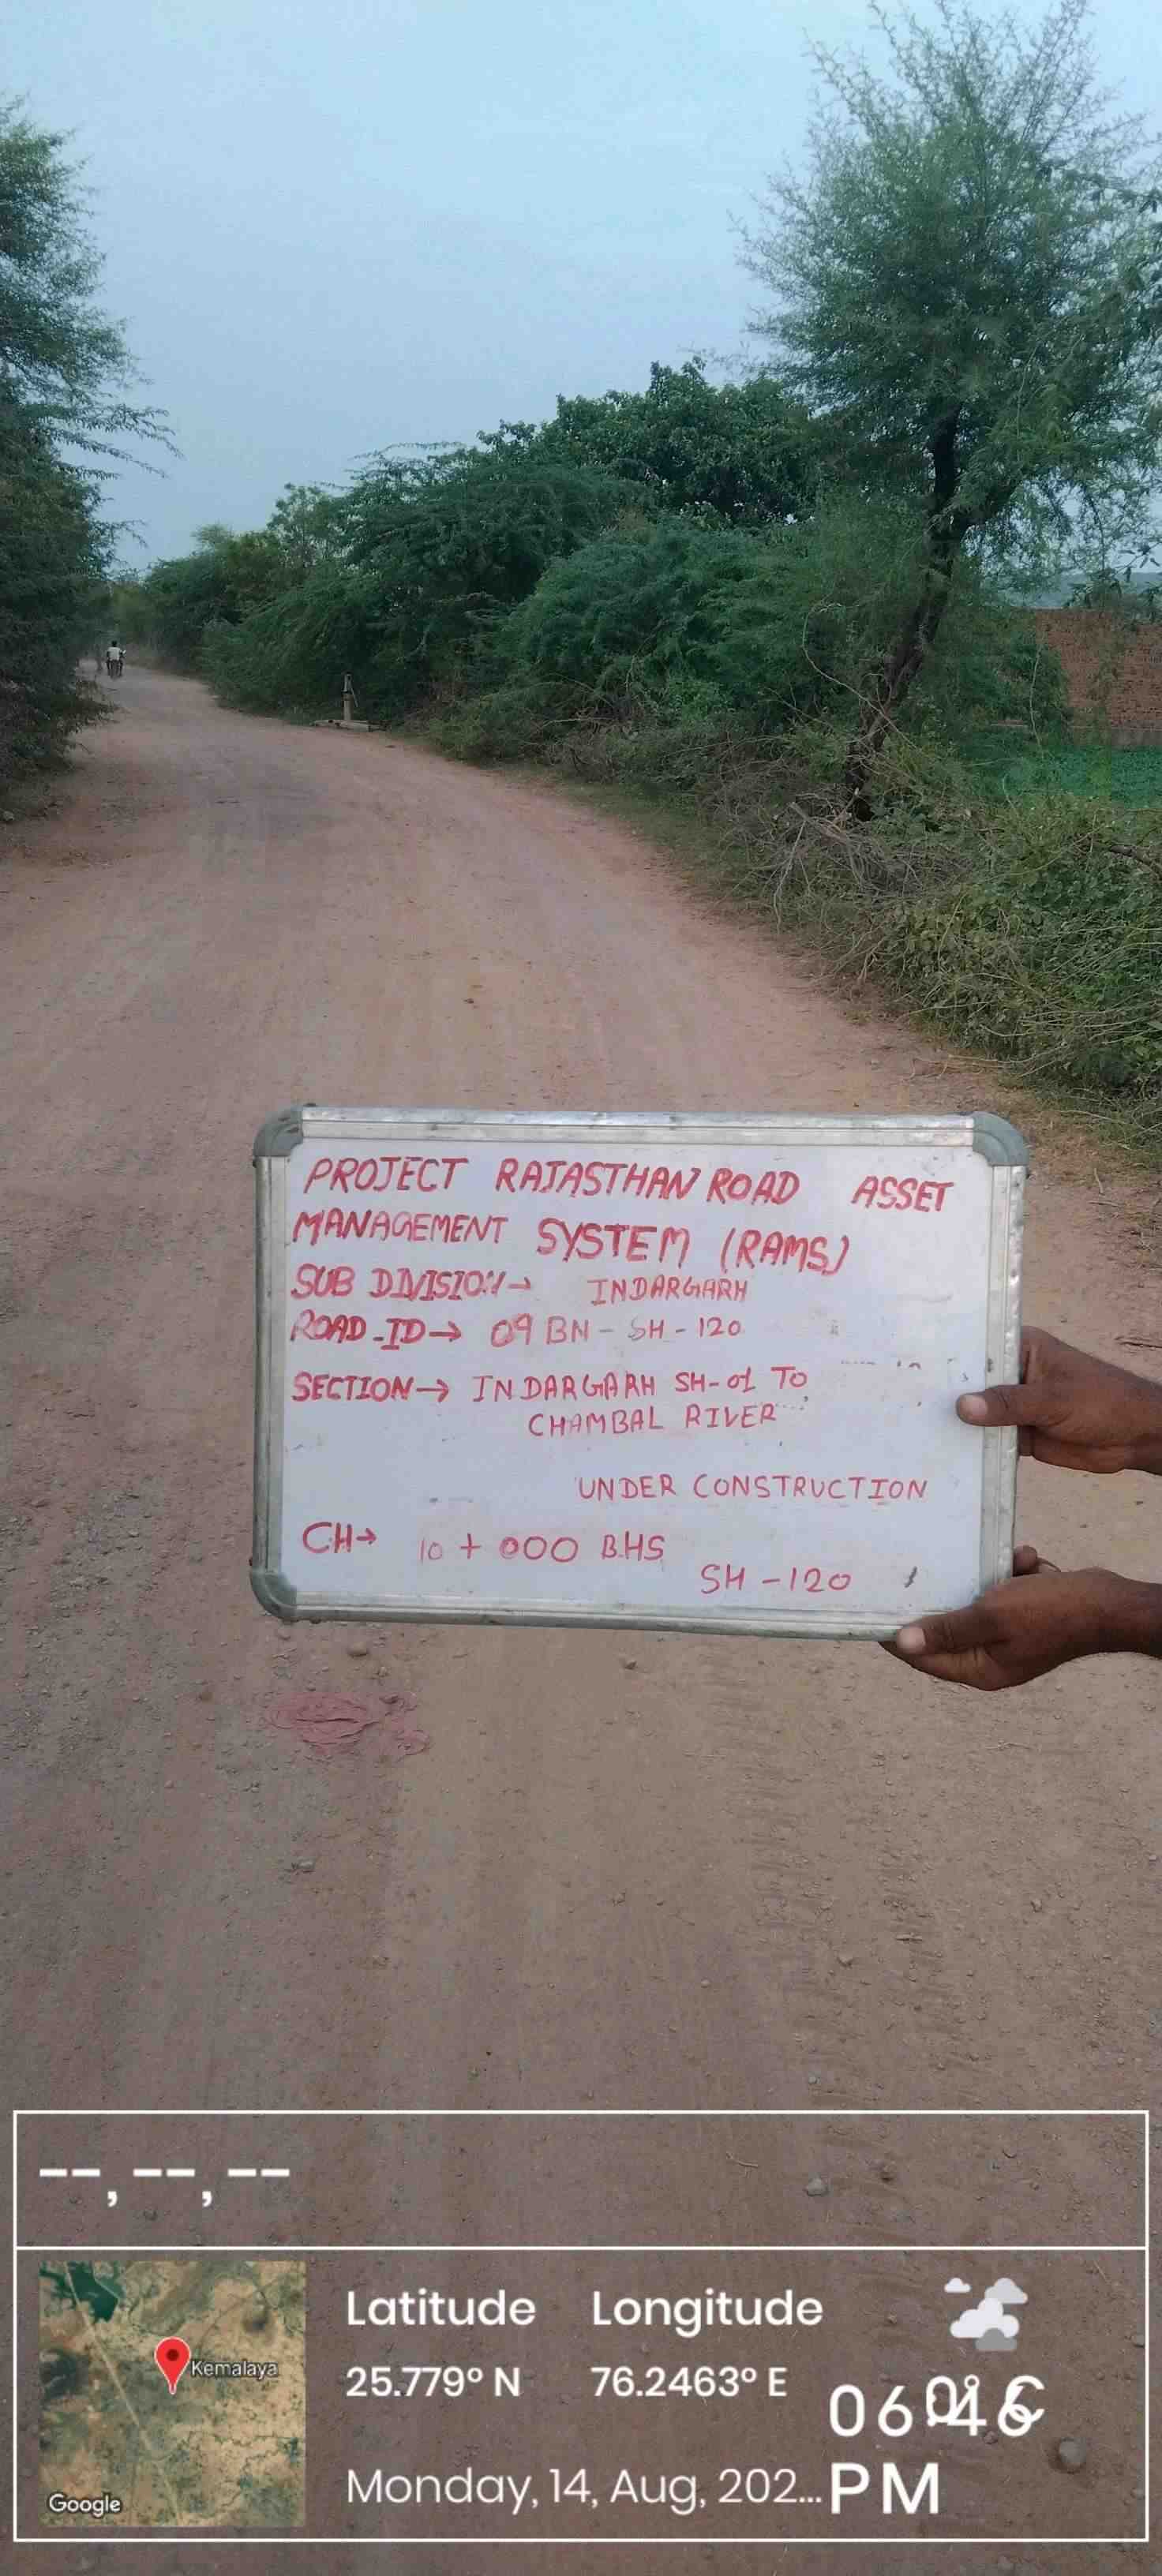 PROJECT RAJASTHAN ROAD ASSET
MANAGEMENT SYSTEM (RAMS)
SUB DIVISION→ INDARGARH
ROAD-ID→ 09 BN - SH - 120
SECTION→ INDARGARH SH-01 TO
CHAMBAL RIVER
UNDER CONSTRUCTION
CH→ 10 + 000 BHS
SH - 120
--, --, --
Kemalaya
Google
Latitude Longitude
25.779° N 76.2463° E
Monday, 14, Aug, 202... PM